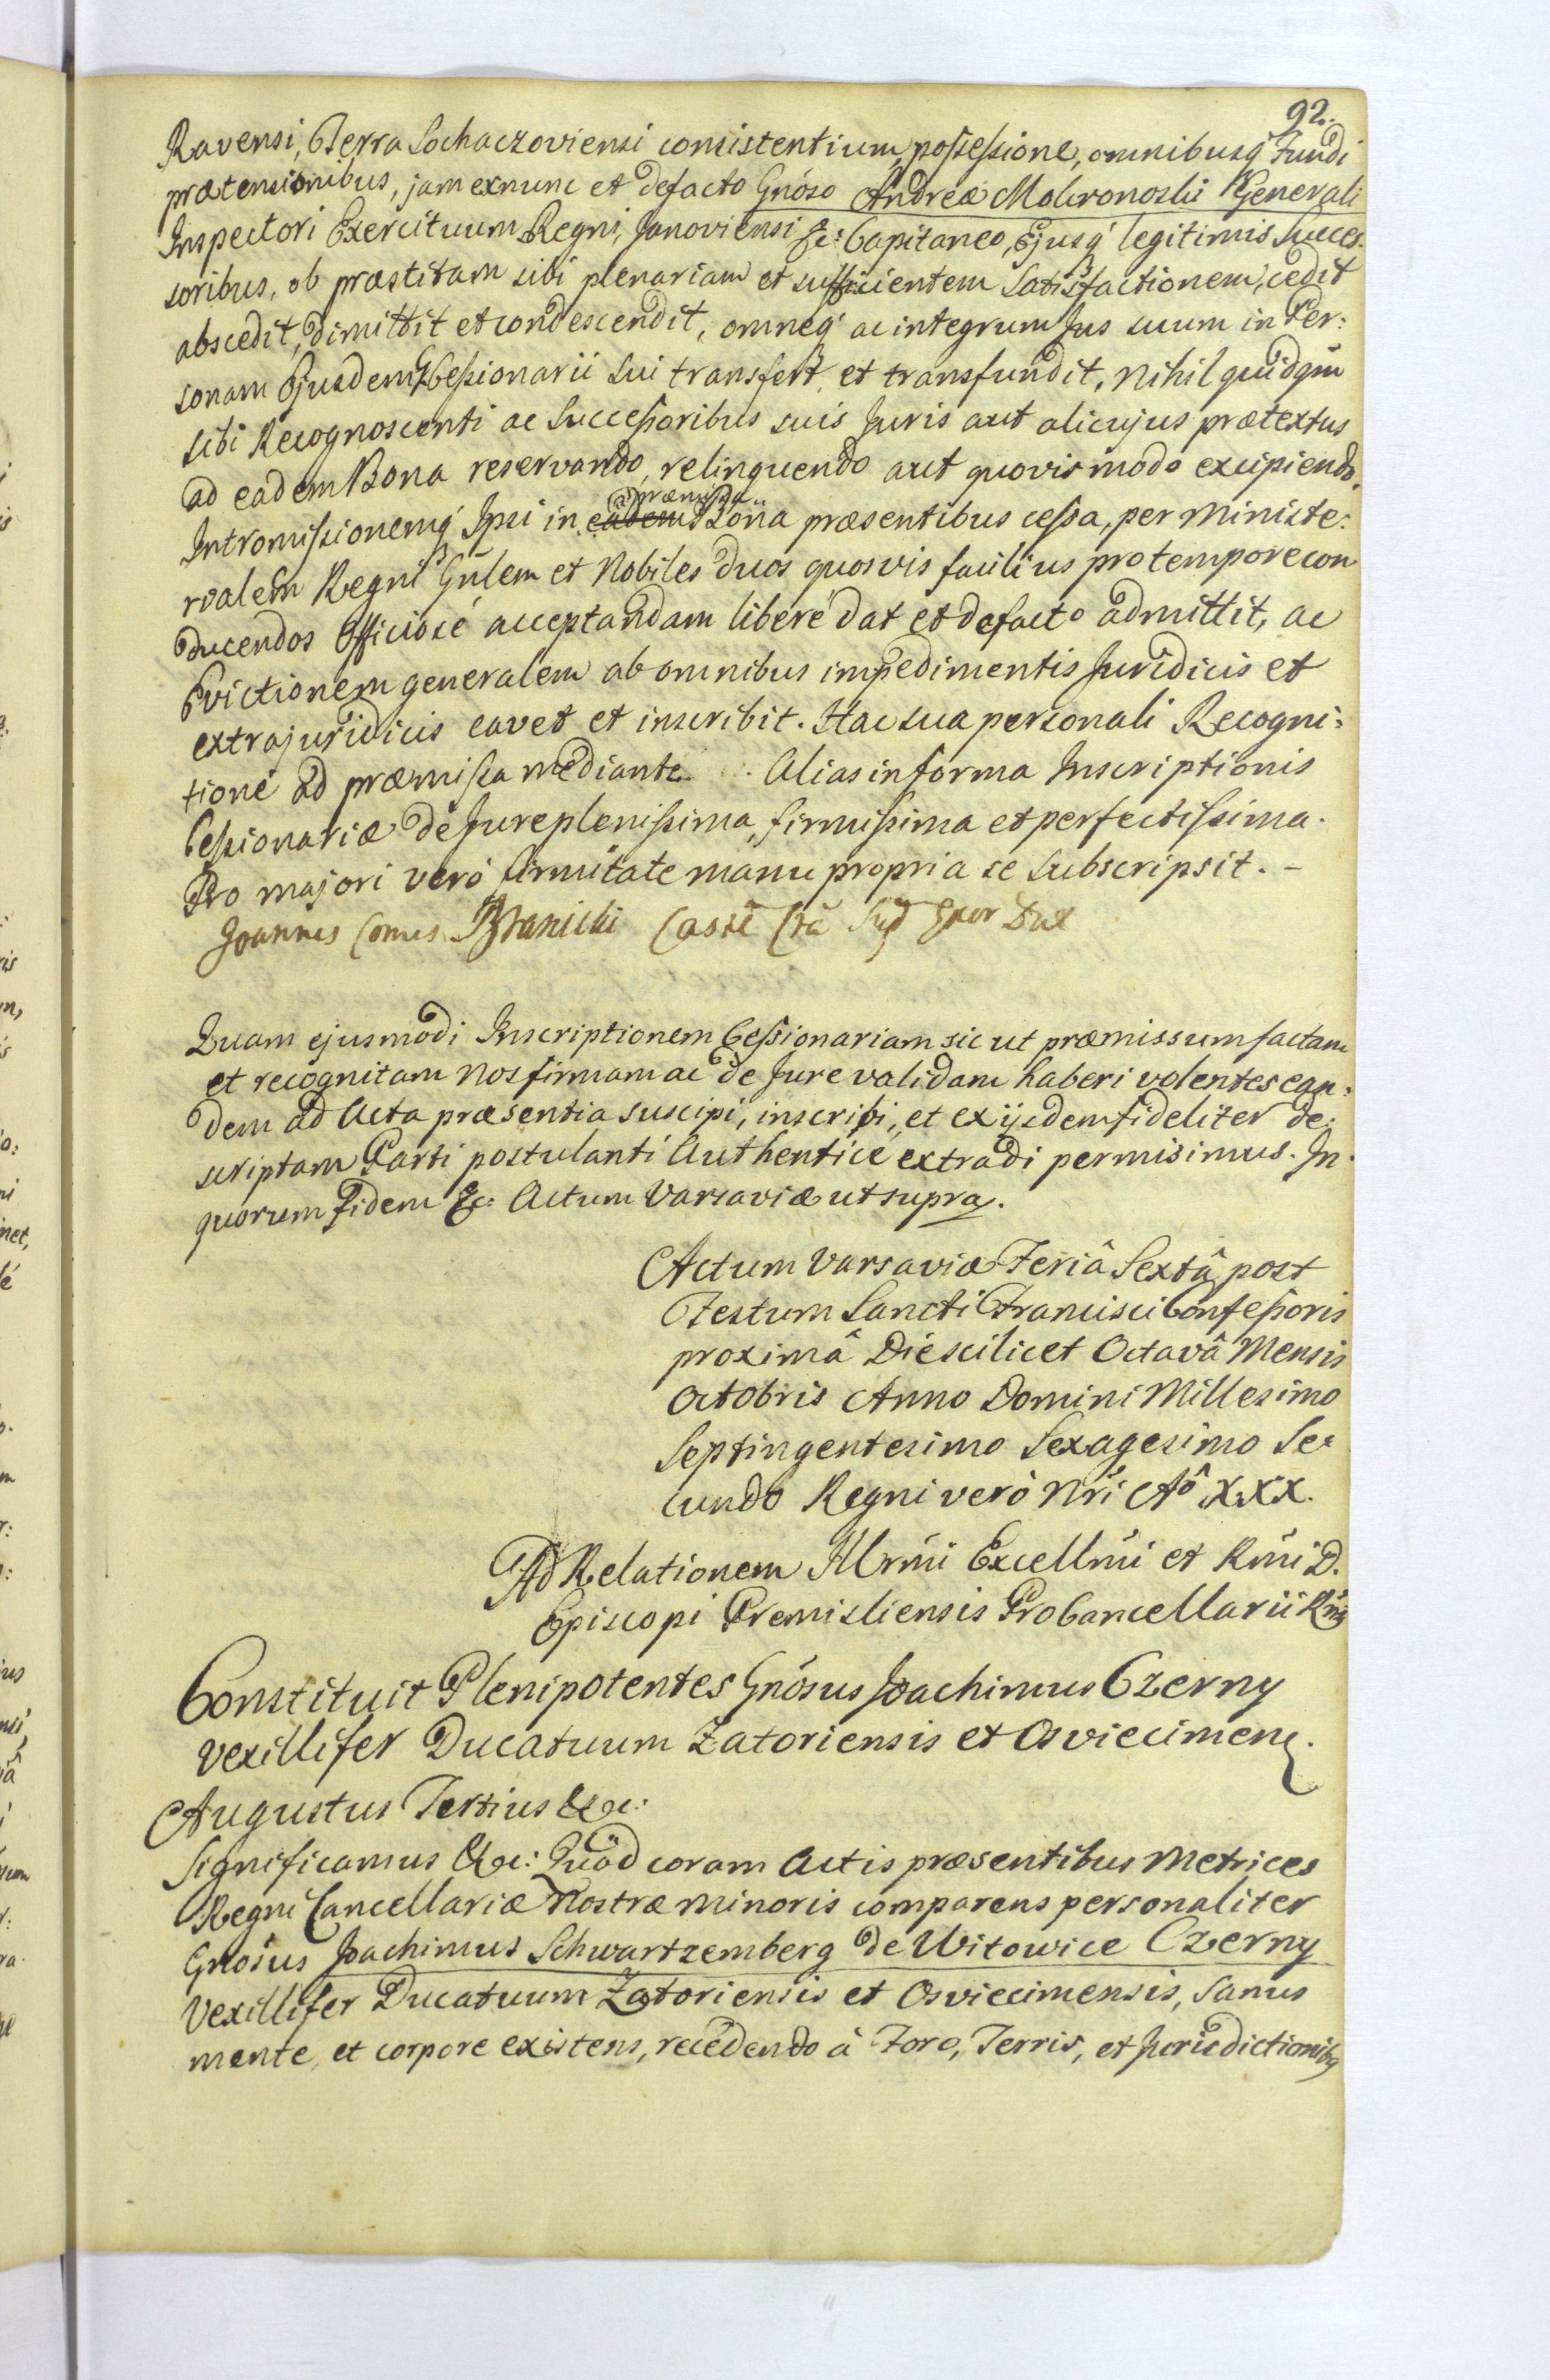 92.
Ravensi, Terra Sochaczoviensi consistentium, possessione, omnibusq́ Fundi
prætensionibus, jam exnunc et defacto Gnóso Andreæ Mokronoski Generali
Inspectori Exercituum Regni, Janoviensi &c: Capitaneo, Ejusq́ legitimis Succes-
soribus, ob præstitam sibi plenariam et sufficientem Satisfactionem, cedit
abscedit, dimittit et condescendit, omneq́ ac integrum Jus suum in Per:
sonam Ejusdem Cessionarii sui transfert, et transfundit, nihil quidqúm
sibi Recognoscenti ac Successoribus suis Juris aut alicujus prætextus
ad eadem Bona reservando, relinquendo aut quovis modo excipiendo.
præmissa
Intromissionemq́ Ipsi in eadem Bona præsentibus cessa, per Ministe:
rialem Regni Gńlem et Nobiles duos quosvis facilius pro tempore con
ducendos Officiosé acceptandam liberé dat et defacto admittit, ac
Evictionem generalem ab omnibus impedimentis Juridicis et
extrajuridicis cavet et inscribit. Hac sua personali Recogni:
tione ad præmissa mediante. Alias in forma Inscriptionis
Cessionariæ de Jure plenissima, firmissima et perfectissima.
Pro majori veró firmitate manu propria se subscripsit. –
Joannes Comes Branicki
Quam ejusmodi Inscriptionem Cessionariam sic ut præmissum factam
et recognitam Nos firmam ac de Jure validam haberi volentes ean:
dem ad Acta præsentia suscipi, inscribi, et ex ijsdem fideliter de:
scriptam Parti postulanti Authenticé extradi permisimus. In
quorum Fidem &c: Actum Varsaviæ ut supra.
Actum Varsaviæ Feriâ Sextâ post
Festum Sancti Francisci Confessoris
proximâ Die scilicet Octavâ Mensis
Octobris Anno Domini Millesimo
Septingentesimo Sexagesimo Se:
cundo Regni verò Nrí Aô XXX.
Ad Relationem Illrmi Excellmi et Rmi D.
Episcopi Premisliensis ProCancellarii Rńi
Constituit Plenipotentes Gnósus Joachimus Czerny
Vexillifer Ducatuum Zatoriensis et Osviecimens.
Augustus Tertius &c:
Significamus &c: Quòd coram Actis præsentibus Metrices
Regni Cancellariæ Nostræ Minoris comparens personaliter
Gnósus Joachimus Schwartzemberg de Witowice Czerny
Vexillifer Ducatuum Zatoriensis et Osviecimensis, Sanus
mente, et corpore existens, recedendo à Foro, Terris, et Jurisdictionibq